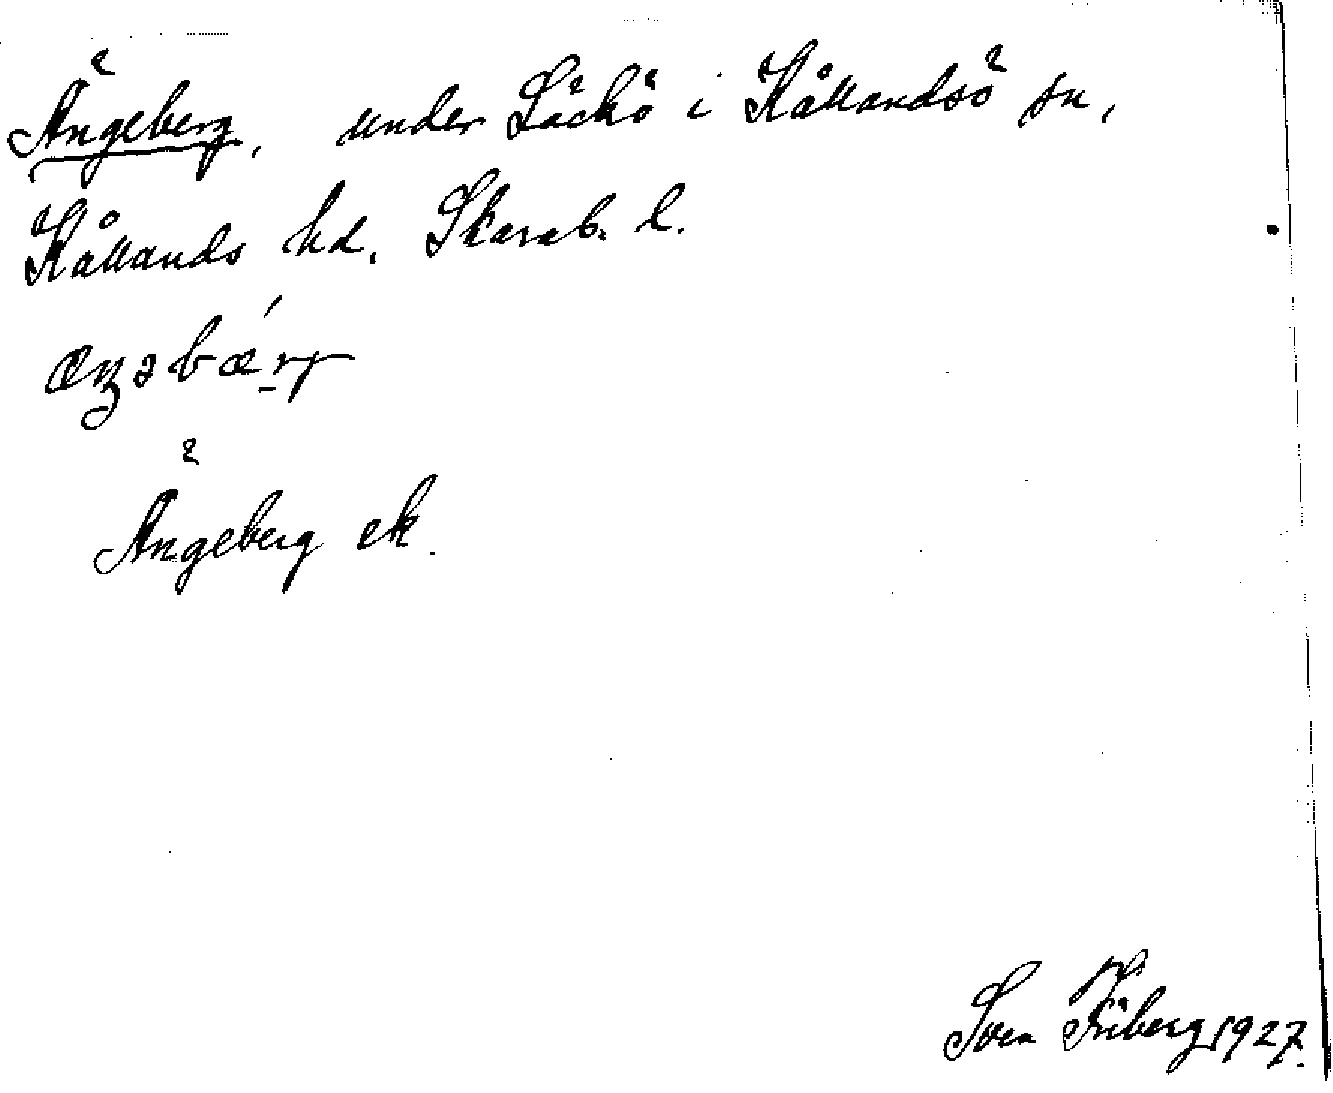 Ängeberg, under Läckö i Kållandsö sn,
Kållands hd, Skarab. l.
Ängeberg ek.
Sven Friberg 1927.